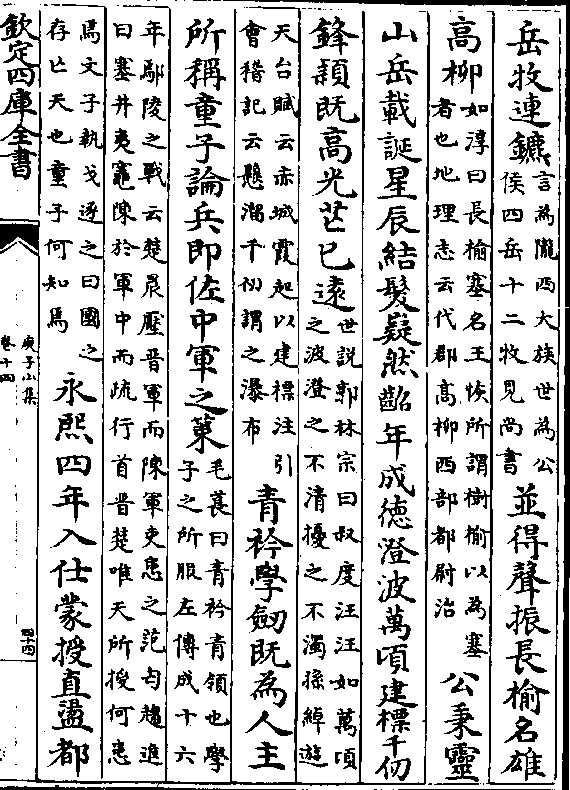 岳牧連鑣言為隴西大族世為公侯四岳十二牧見尚書並得聲振長榆名雄
高柳如淳曰長榆塞名王恢所謂樹榆以為塞者也地理志云代郡高柳西部都尉治公秉靈
山岳載誕星辰結髮嶷然齠年成德澄波萬頃建標千仞
鋒頴既高光芒已遠世説郭林宗曰叔度汪汪如萬頃之波澄之不清擾之不濁孫綽遊
天台賦云赤城霞起以建標注引會稽記云懸溜千仞謂之瀑布青衿學劒既為人主
所稱童子論兵即佐中軍之策毛萇曰青衿青領也學子之所服左傳成十六
年鄢陵之戰云楚晨壓晉軍而陳軍吏患之范匄趨進曰塞井夷竈陳於軍中而疏行首晉楚唯天所授何患
焉文子執戈逐之曰國之存亡天也童子何知焉永熙四年入仕蒙授直盪都
欽定四庫全書
庾子山集
卷十四
四十四